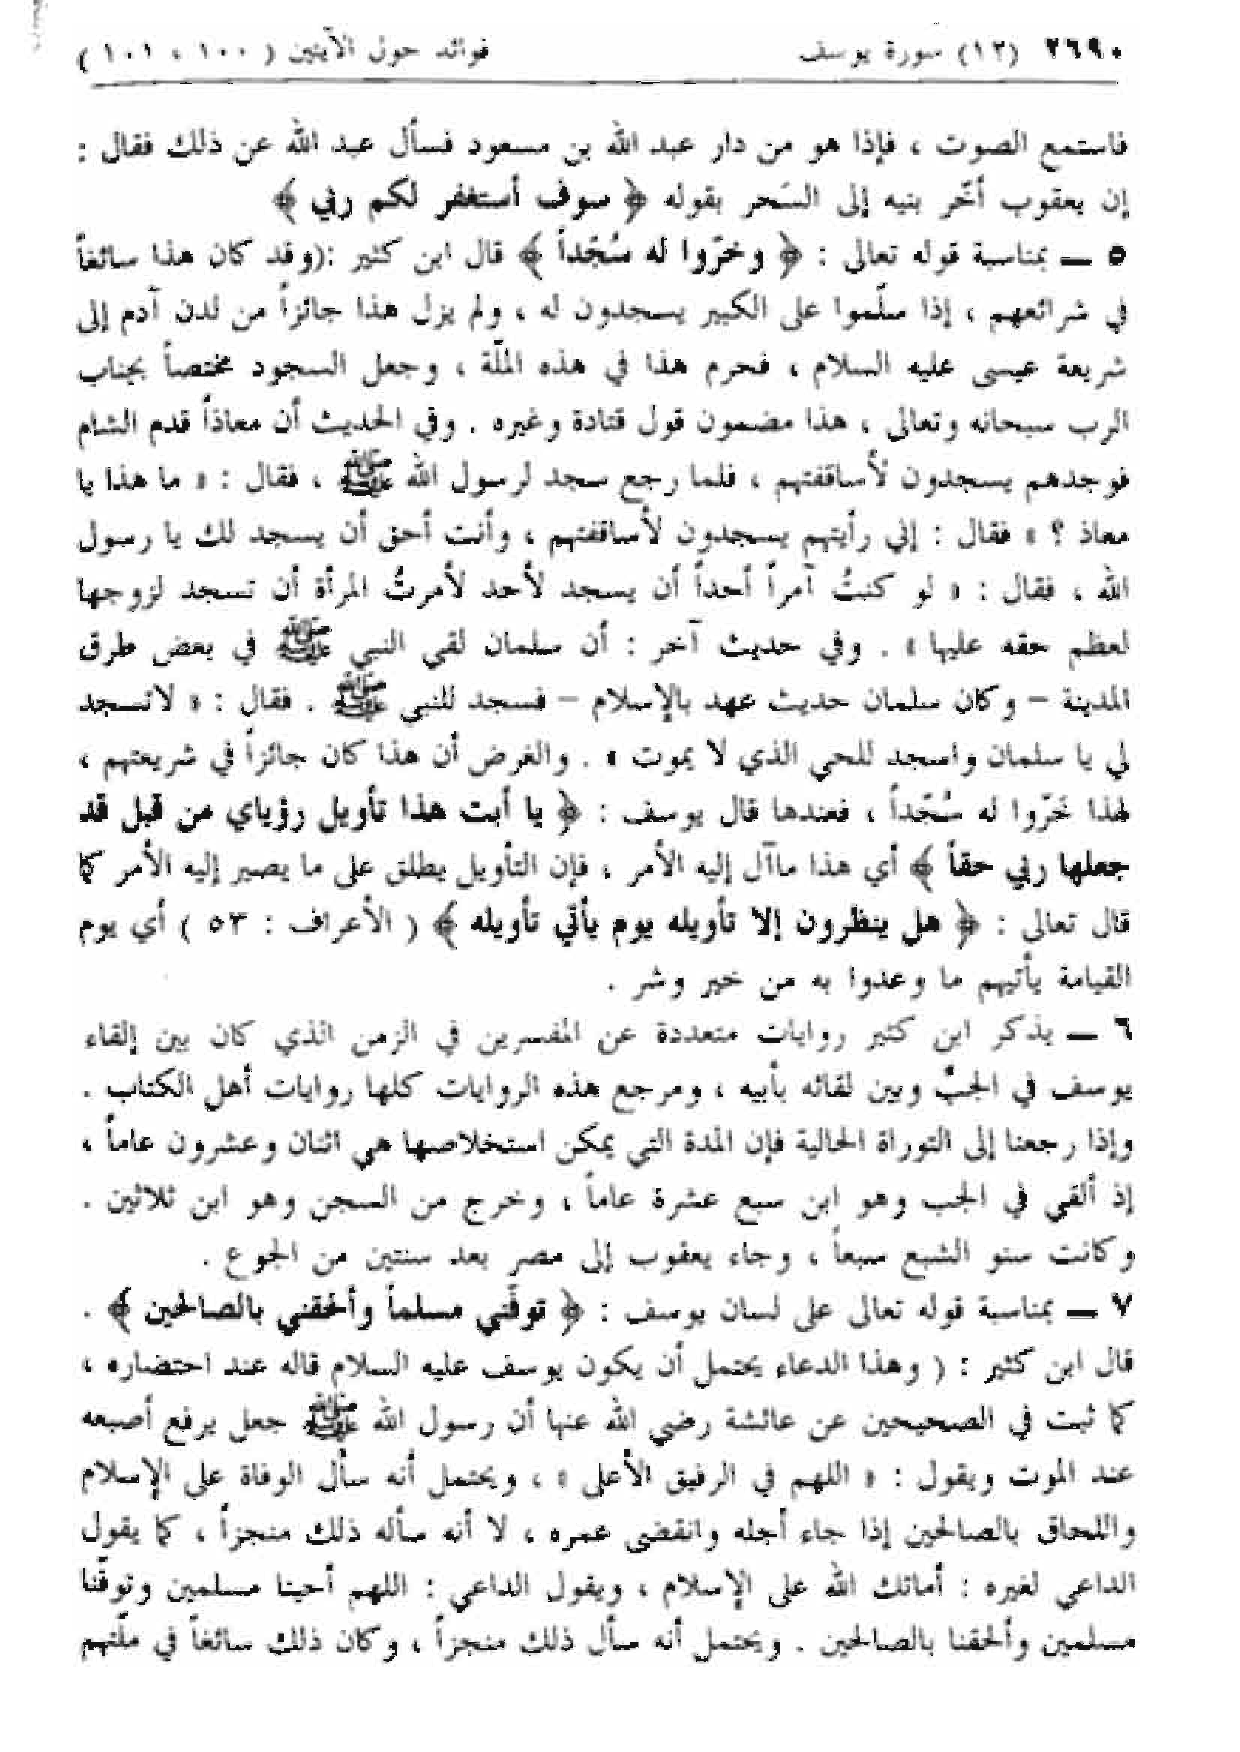 ٢٦٩٠ (١٢) سورة يوسف فوائد حول الآيتين ( ١٠٠ ، ١٠١ )
فاستمع الصوت ، فإذا هو من دار عبد الله بن مسعود فسأل عبد الله عن ذلك فقال :
إن يعقوب أخّر بنيه إلى السَحر بقوله ﴿ سوف أستغفر لكم ربي ﴾
٥ ــ بمناسبة قوله تعالى : ﴿ وخرّوا له سُجّداً ﴾ قال ابن كثير :(وقد كان هذا سائغاً
في شرائعهم ، إذا سلّموا على الكبير يسجدون له ، ولم يزل هذا جائزاً من لدن آدم إلى
شريعة عيسى عليه السلام ، فحرم هذا في هذه الملّة ، وجعل السجود مختصاً بجناب
الرب سبحانه وتعالى ، هذا مضمون قول قتادة وغيره . وفي الحديث أن معاذاً قدم الشام
فوجدهم يسجدون لأساقفتهم ، فلما رجع سجد لرسول الله ﷺ ، فقال : « ما هذا يا
معاذ ؟ » فقال : إني رأيتهم يسجدون لأساقفتهم ، وأنت أحق أن يسجد لك يا رسول
الله ، فقال : « لو كنتُ آمراً أحداً أن يسجد لأحد لأمرتُ المرأة أن تسجد لزوجها
لعظم حقه عليها » . وفي حديث آخر : أن سلمان لقي النبي ﷺ في بعض طرق
المدينة – وكان سلمان حديث عهد بالإسلام – فسجد للنبي ﷺ . فقال : « لاتسجد
لي يا سلمان واسجد للحي الذي لا يموت » . والغرض أن هذا كان جائزاً في شريعتهم ،
لهذا خَرّوا له سُجّداً ، فعندها قال يوسف : ﴿ يا أبت هذا تأويل رؤياي من قبل قد
جعلها ربي حقاً ﴾ أي هذا ماآل إليه الأمر ، فإن التأويل يطلق على ما يصير إليه الأمر كما
قال تعالى : ﴿ هل ينظرون إلا تأويله يوم يأتي تأويله ﴾ ( الأعراف : ٥٣ ) أي يوم
القيامة يأتيهم ما وعدوا به من خير وشر .
٦ ــ يذكر ابن كثير روايات متعددة عن المفسرين في الزمن الذي كان بين إلقاء
يوسف في الجبّ وبين لقائه بأبيه ، ومرجع هذه الروايات كلها روايات أهل الكتاب .
وإذا رجعنا إلى التوراة الحالية فإن المدة التي يمكن استخلاصها هي اثنان وعشرون عاماً ،
إذ ألقي في الجب وهو ابن سبع عشرة عاماً ، وخرج من السجن وهو ابن ثلاثين .
وكانت سنو الشبع سبعاً ، وجاء يعقوب إلى مصر بعد سنتين من الجوع .
٧ ــ بمناسبة قوله تعالى على لسان يوسف : ﴿ توفّني مسلماً وألحقني بالصالحين ﴾ .
قال ابن كثير : ( وهذا الدعاء يحتمل أن يكون يوسف عليه السلام قاله عند احتضاره ،
كما ثبت في الصحيحين عن عائشة رضي الله عنها أن رسول الله ﷺ جعل يرفع أصبعه
عند الموت ويقول : « اللهم في الرفيق الأعلى » ، ويحتمل أنه سأل الوفاة على الإسلام
واللحاق بالصالحين إذا جاء أجله وانقضى عمره ، لا أنه سأله ذلك منجزاً ، كما يقول
الداعي لغيره : أماتك الله على الإسلام ، ويقول الداعي : اللهم أحينا مسلمين وتوفّنا
مسلمين وألحقنا بالصالحين . ويحتمل أنه سأل ذلك منجزاً ، وكان ذلك سائغاً في ملّتهم